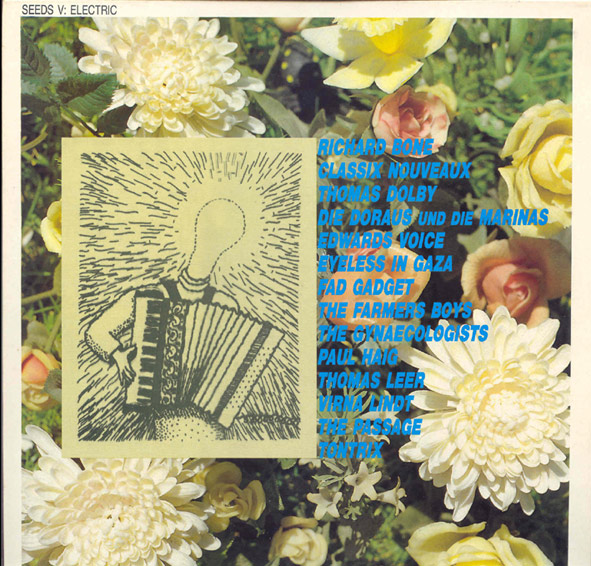 SEEDS V: ELECTRIC
RICHARD BONE
CLASSIX NOUVEAUX
THOMAS DOLBY
DIE DORAUS UND DIE MARINAS
EDWARDS VOICE
EYELESS IN GAZA
FAD GADGET
THE FARMERS BOYS
THE GYNAECOLOGISTS
PAUL HAIG
THOMAS LEER
VIRNA LINDT
THE PASSAGE
TONTRIX